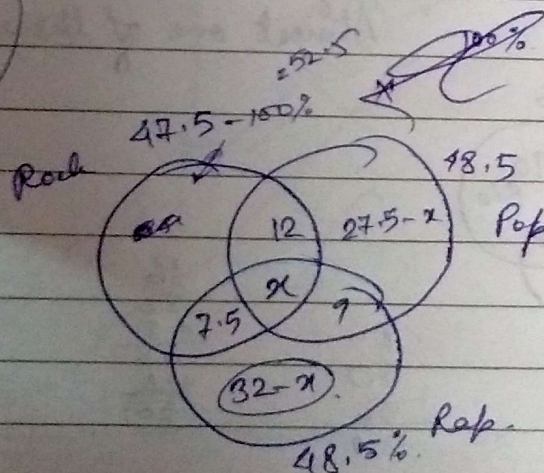 =52.5
100%
47.5-100%
Rock
48.5
Pop
12
27.5-x
x
7.5
9
32-x
Rap.
48.5%.